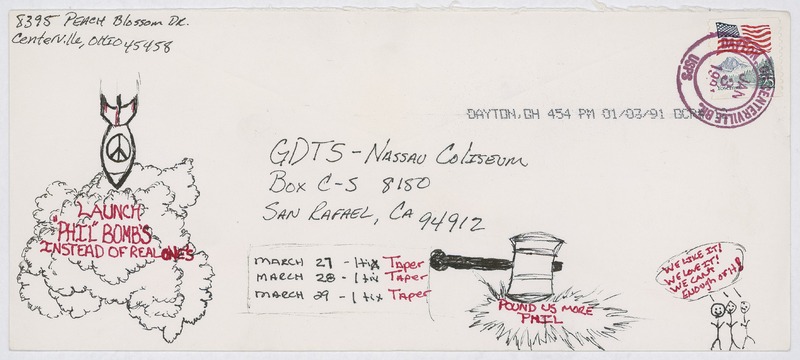 8395 Peach Blossom Dr.
Centerville, Ohio 45458
DAYTON, OH 454 PM 01/03/91
USPS
1991
JAN
CENTERVILLE BR.
GDTS - Nassau Coliseum
Box C-S 8150
San Rafael, CA 94912
LAUNCH
"PHIL" BOMB'S
INSTEAD OF REAL ONE'S
MARCH 27 - 1 tix Taper
MARCH 28 - 1 tix Taper
MARCH 29 - 1 tix Taper
POUND US MORE
PHIL
WE LIKE IT!
WE LOVE IT!
WE CAN'T
ENOUGH OF it!